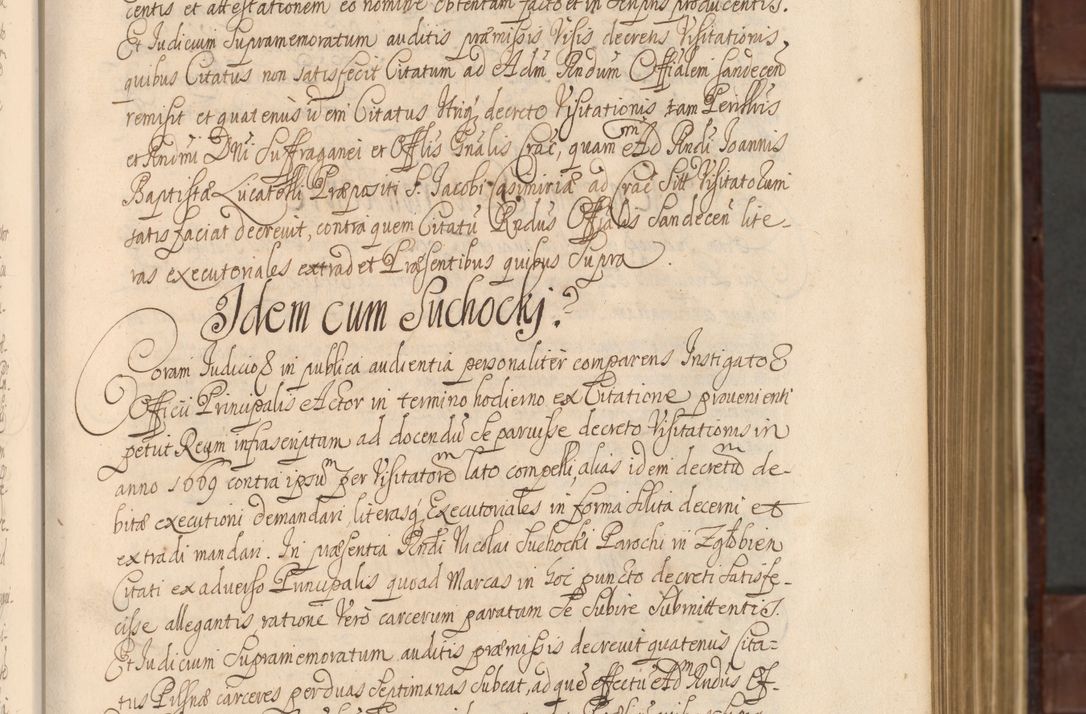 centis et attestationem eo nomine obtentam facto et in scriptis producentis.
Et Judicium Supramemoratum auditis præmissis Visis decretis Visitationis,
quibus Citatus non satisfecit Citatum ad Adm Rndum Offialem Sandecen
remisit et quatenus idem Citatus utriq decreto Visitationis tam Perillris
et Rndmi Dni Suffraganei et Offlis Gnalis Crac, quam Ad m Rndi Joannis
Baptistæ Lucatoski Præpositi S. Jacobi Casimiriæ ad Crac Siti Visitatorum
satisfaciat decrevit, contra quem Citatū Rndus Offialis Sandecen lite-
ras executoriales extradet Præsentibus quibus Supra.
Idem cum Suchockj.
Coram Judicio in publica audientia personaliter comparens Instigator
Officii Principalis Actor in termino hodierno ex Citatione provenienti
petiit Reum infrascriptam ad docendū se paruisse decreto Visitationis in
anno 1669 contra ipsum per Visitatorem lato compelli, alias idem decretum de-
bitæ executioni demandari, literasq Executoriales in forma solita decerni et
extradi mandari. In præsentia Rndi Nicolai Suchocki Parochi in Zgłobien
Citati ex adverso Principalis quoad Marcas in hoc puncto decreti satisfe-
cisse allegantis ratione Vero carcerum paratum se subire submittentis.
Et Judicium Supramemoratum auditis præmissis decrevit quatenus Cita-
tus Pilsnæ carceres per duas Septimanas subeat, ad que effectū Adm Rndus Of-